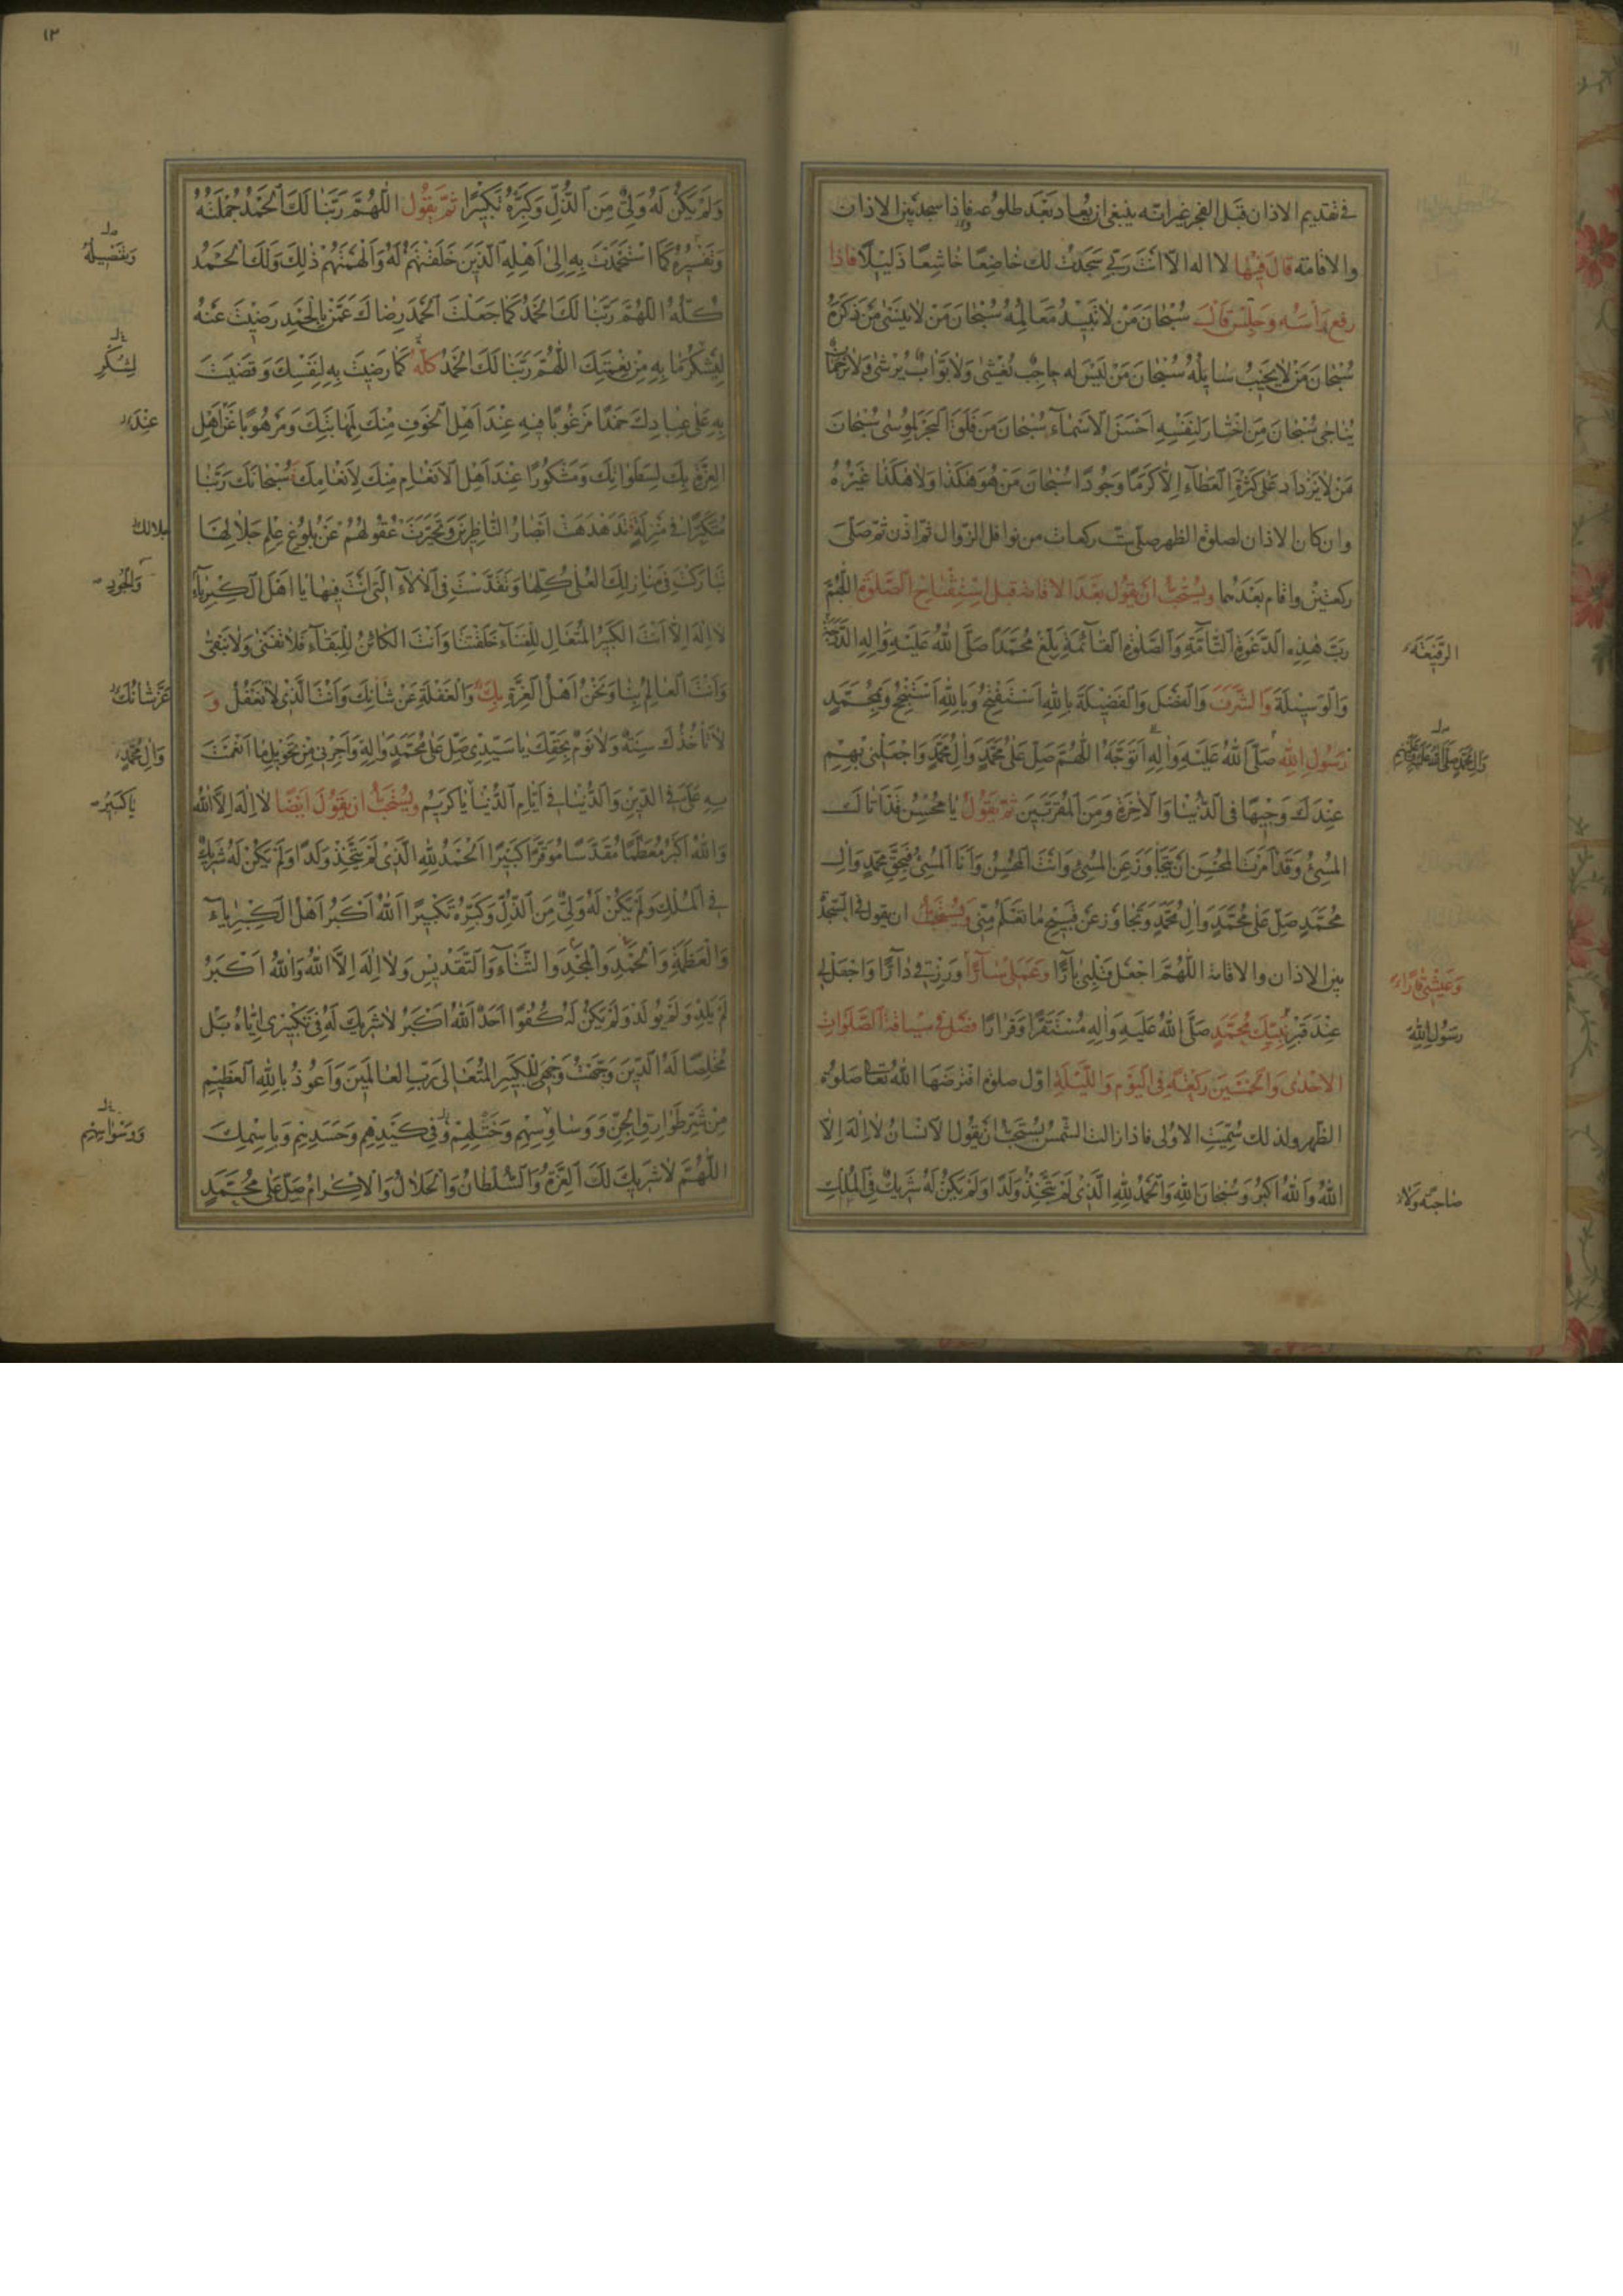 في تقديم الاذان قبل الفجر غير انه ينبغي ان يعاد بعد طلوعه فاذا سجد بين الاذان
والاقامة قال فيها لا اله الا انت ربي سجدت لك خاضعا خاشعا ذليلا فاذا
رفع رأسه وجلس قال سبحان من لا تبيد معالمه سبحان من لا ينسى من ذكره
سبحان من لا يخيب سائله سبحان من ليس له حاجب يغشى ولا بواب يرشى ولا ترجمان
يناجى سبحان من اختار لنفسه احسن الاسماء سبحان من فلق البحر لموسى سبحان
من لا يزداد على كثرة العطاء الا كرما وجودا سبحان من هو هكذا ولا هكذا غيره
وان كان الاذان لصلوة الظهر صلى ست ركعات من نوافل الزوال ثم اذن ثم صلى
ركعتين واقام بعدهما ويستحب ان يقول بعد الاقامة قبل استفتاح الصلوة اللهم
رب هذه الدعوة التامة والصلوة القائمة بلغ محمدا صلى الله عليه واله الدرجة
الرفيعة
والوسيلة والشرف والفضل والفضيلة بالله استفتح وبالله استنجح وبمحمد
رسول الله صلى الله عليه واله اتوجه اللهم صل على محمد وال محمد واجعلني بهم
عندك وجيها في الدنيا والاخرة ومن المقربين ثم يقول يا محسن قد اتاك
المسيء وقد امرت المحسن ان يتجاوز عن المسيء وانت المحسن وانا المسيء فبحق محمد وال
محمد صل على محمد وال محمد وتجاوز عن قبيح ما تعلم مني ويستحب ان يقول في السجدة
بين الاذان والاقامة اللهم اجعل قلبي بارا وعملي سارا ورزقي دارا واجعل لي
وعيشي قارا
عند قبر نبيك محمد صلى الله عليه واله مستقرا وقرارا فصل في سياقة الصلوات
رسول الله
الاحدى والخمسين ركعة في اليوم والليلة اول صلوة افترضها الله تعالى صلوة
الظهر ولذلك سميت الاولى فاذا زالت الشمس يستحب ان يقول الانسان لا اله الا
الله والله اكبر وسبحان الله والحمد لله الذي لم يتخذ ولدا ولم يكن له شريك في الملك
صاحبة ولا
١٢
ولم يكن له ولي من الذل وكبره تكبيرا ثم يقول اللهم ربنا لك الحمد جملته
وتفسيره كما استحمدت به الى اهله الذين خلقتهم له والهمتهم ذلك ولك الحمد
وتفصيله
كله اللهم ربنا لك الحمد كما جعلت الحمد رضاك عمن بالحمد رضيت عنه
ليشكر ما به من نعمتك اللهم ربنا لك الحمد كله كما رضيت به لنفسك وقضيت
لشكر
به على عبادك حمدا مرغوبا فيه عند اهل الخوف منك لمهابتك ومرهوبا عن اهل
عند
العزة بك لسطواتك ومشكورا عند اهل الانعام منك لانعامك سبحانك ربنا
متكبرا في منزلة تدهدهت ابصار الناظرين وتحيرت عقولهم عن بلوغ علم جلالها
جلالك
تباركت في منازلك العلى كلها وتقدست في الالاء التي انت فيها يا اهل الكبرياء
والجود
لا اله الا انت الكبير المتعال للفناء خلقتنا وانت الكائن للبقاء فلا تفنى ولا نبقى
وانت العالم بنا ونحن اهل العزة بك والغفلة عن شأنك وانت الذي لا تغفل و
عن شانك
لا تأخذك سنة ولا نوم بحقك يا سيدي صل على محمد واله واجرني من تحويل ما انعمت
وال محمد
به علي في الدين والدنيا في ايام الدنيا يا كريم ويستحب ان يقول ايضا لا اله الا الله
يا كبير
والله اكبر معظما مقدسا موقرا كبيرا الحمد لله الذي لم يتخذ ولدا ولم يكن له شريك
في الملك ولم يكن له ولي من الذل وكبره تكبيرا الله اكبر اهل الكبرياء
والعظمة والحمد والمجد والثناء والتقديس ولا اله الا الله والله اكبر
لم يلد ولم يولد ولم يكن له كفوا احد الله اكبر لا شريك له في تكبيري اياه بل
مخلصا له الدين وجهت وجهي للكبير المتعالى رب العالمين واعوذ بالله العظيم
من شر طوارق الجن ووساوسهم وختلهم وفي كيدهم وحسدهم وباسمك
ووسواسهم
اللهم لا شريك لك لك العزة والسلطان والجلال والاكرام صل على محمد